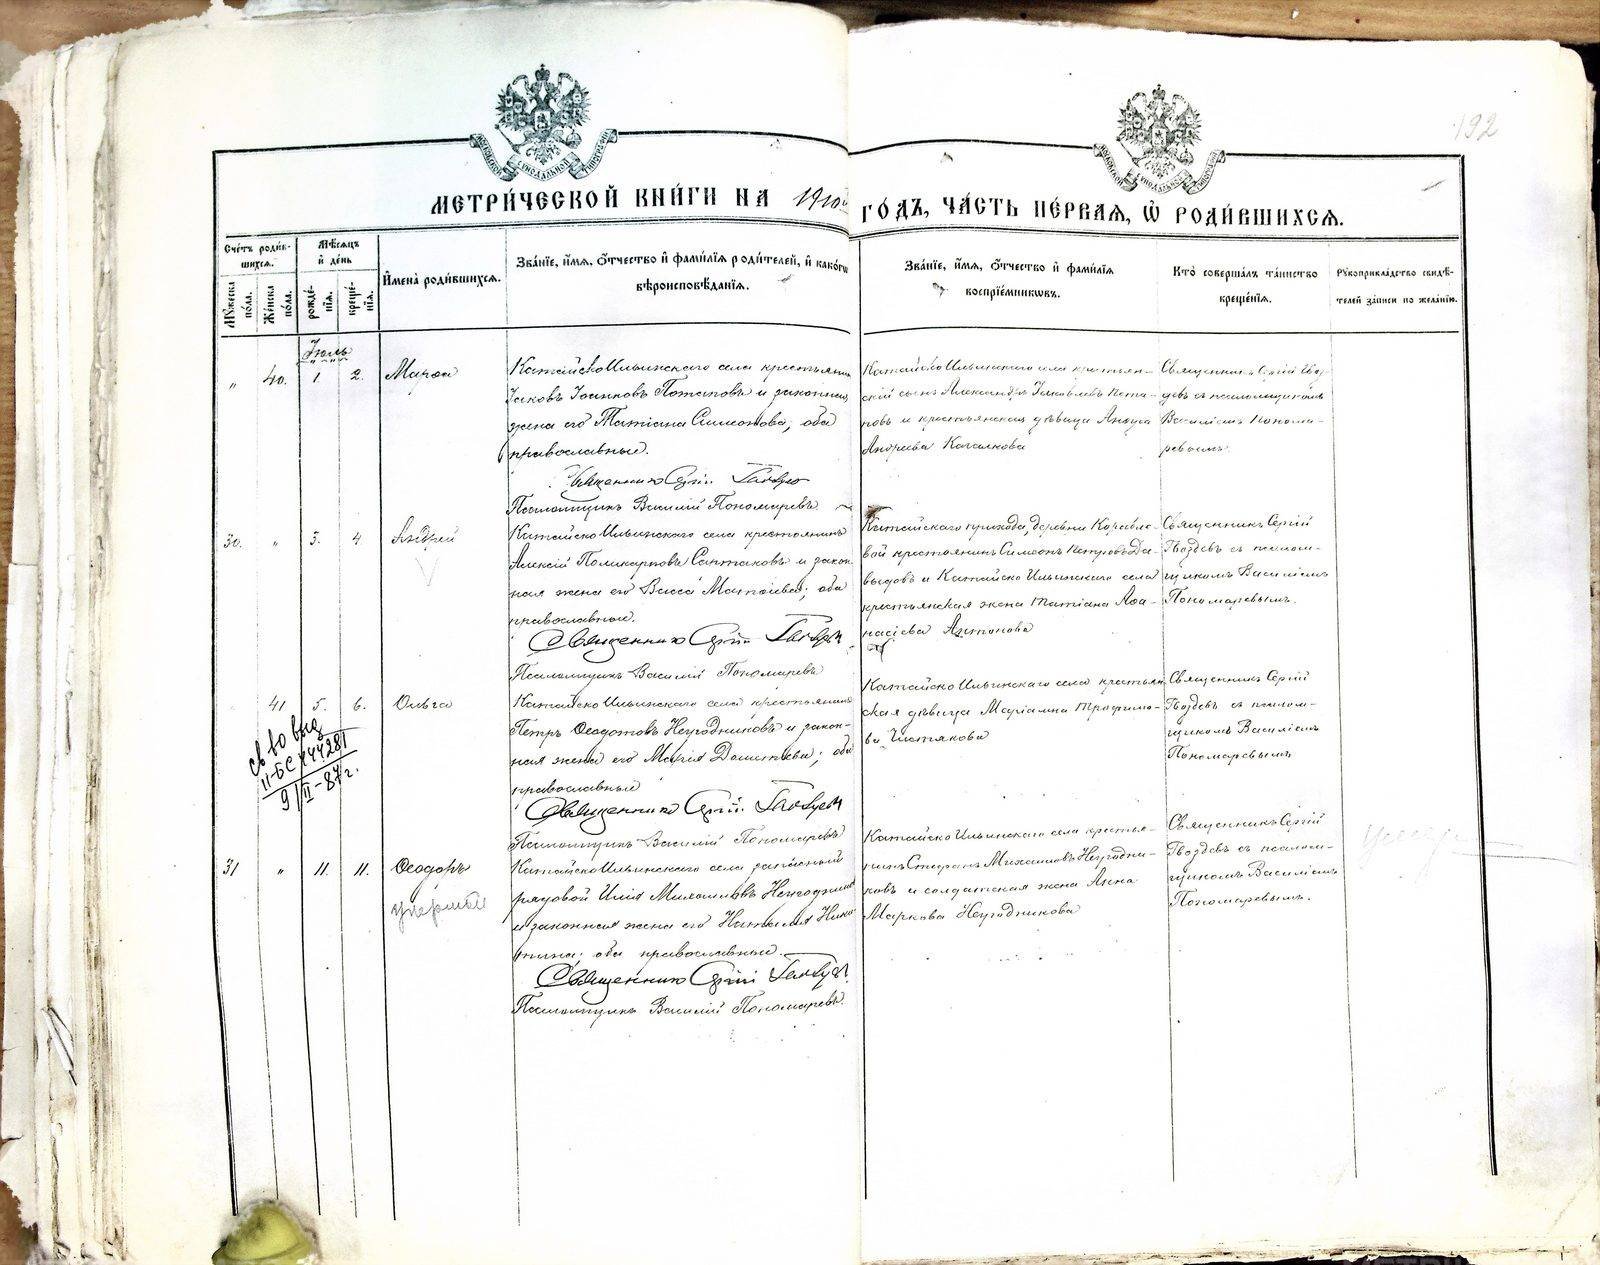 192
МОСКОВСКОЙ СУНОДАЛЬНОЙ ТИПОГРАФІИ
МОСКОВСКОЙ СУНОДАЛЬНОЙ ТИПОГРАФІИ
МЕТРИ́ЧЕСКОЙ КНИ́ГИ НА 1910й ГО́ДЪ, ЧА́СТЬ ПЕ́РВАЯ, Ѡ РОДИ́ВШИХСЯ.
Сче́тъ роди́в-
шихся.
Мꙋ́жеска
по́ла.
Же́нска
по́ла.
Мѣ́сяцъ
и҆ де́нь
рожде́-
нїѧ.
креще́-
нїѧ.
И҆мена̀ роди́вшихся.
Зва́нїе, и҆́мѧ, ѻ҆́тчество и҆ фами́лїѧ роди́телей, и҆ како́гѡ
вѣроисповѣ́данїѧ.
Зва́нїе, и҆́мѧ, ѻ҆́тчество и҆ фами́лїѧ
воспрїе́мникѡвъ.
Кто̀ соверша́лъ та́инство
креще́нїѧ.
Рꙋкоприкла́дство свидѣ́-
телей за́писи по жела́нїю.
Іюль
„ 40. 1. 2. Марѳа
Катайско Ильинскаго села крестьянинъ
Іаковъ Іоанновъ Потаповъ и законная
жена его Татіана Симонова; оба
православные.
Священникъ Сергій Гвоздевъ
Псаломщикъ Василій Пономаревъ
Катайско Ильинскаго села крестьян-
скій сынъ Александръ Іаковлевъ Пота-
повъ и крестьянская дѣвица
Андреева Качалкова
Священникъ Сергій Гвоз-
девъ съ псаломщикомъ
Василіемъ Понома-
ревымъ.
30. „ 3. 4 Андрей
Катайско Ильинскаго села крестьянинъ
Алексій Поликарповъ и закон-
ная жена его Васса Матѳіева; оба
православные.
Священникъ Сергій Гвоздевъ
Псаломщикъ Василій Пономаревъ
Катайскаго прихода, деревни Корабле-
вой крестьянинъ Симеонъ Петровъ Да-
выдовъ и Катайско Ильинскаго села
крестьянская жена Татіана Аѳа-
насіева Антонова
Священникъ Сергій
Гвоздевъ съ псалом-
щикомъ Василіемъ
Пономаревымъ.
41 5. 6. Ольга
Катайско Ильинскаго села крестьянинъ
Петръ Ѳеодотовъ Негодниковъ и закон-
ная жена его Марія Дометіева; оба
православные
Священникъ Сергій Гвоздевъ
Псаломщикъ Василій Пономаревъ
Катайско Ильинскаго села крестьян-
ская дѣвица Маріамна Трофимо-
ва Чистякова
Священникъ Сергій
Гвоздевъ съ псалом-
щикомъ Василіемъ
Пономаревымъ
св во выд
II-БС №442281
9/II-87 г.
31 „ 11. 11. Ѳеодоръ
умерший
Катайско Ильинскаго села запасный
рядовой Илія Михаиловъ Негодниковъ
и законная жена его Наталія Ники-
тина; оба православные.
Священникъ Сергій Гвоздевъ
Псаломщикъ Василій Пономаревъ.
Катайско Ильинскаго села крестья-
нинъ Стефанъ Михаиловъ Негодни-
ковъ и солдатская жена Анна
Маркова Негодникова
Священникъ Сергій
Гвоздевъ съ псалом-
щикомъ Василіемъ
Пономаревымъ.